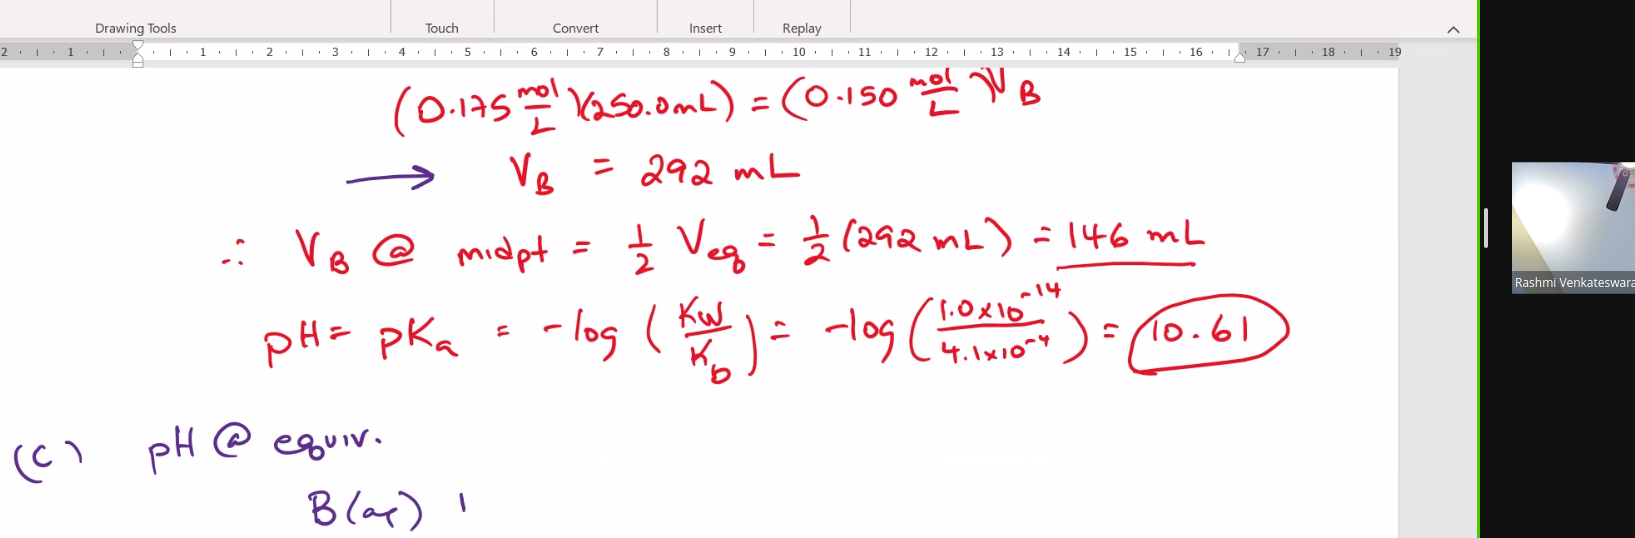 Drawing Tools Touch Convert Insert Replay
2 1 1 2 3 4 5 6 7 8 9 10 11 12 13 14 15 16 17 18 19
(0.175 mol/L)(250.0 mL) = (0.150 mol/L) V_B
→ V_B = 292 mL
∴ V_B @ midpt = 1/2 V_eq = 1/2 (292 mL) = 146 mL
pH = pKa = -log (Kw/K_b) = -log (1.0x10^-14/4.1x10^-4) = 10.61
(c) pH @ equiv.
B(aq)
Rashmi Venkateswara